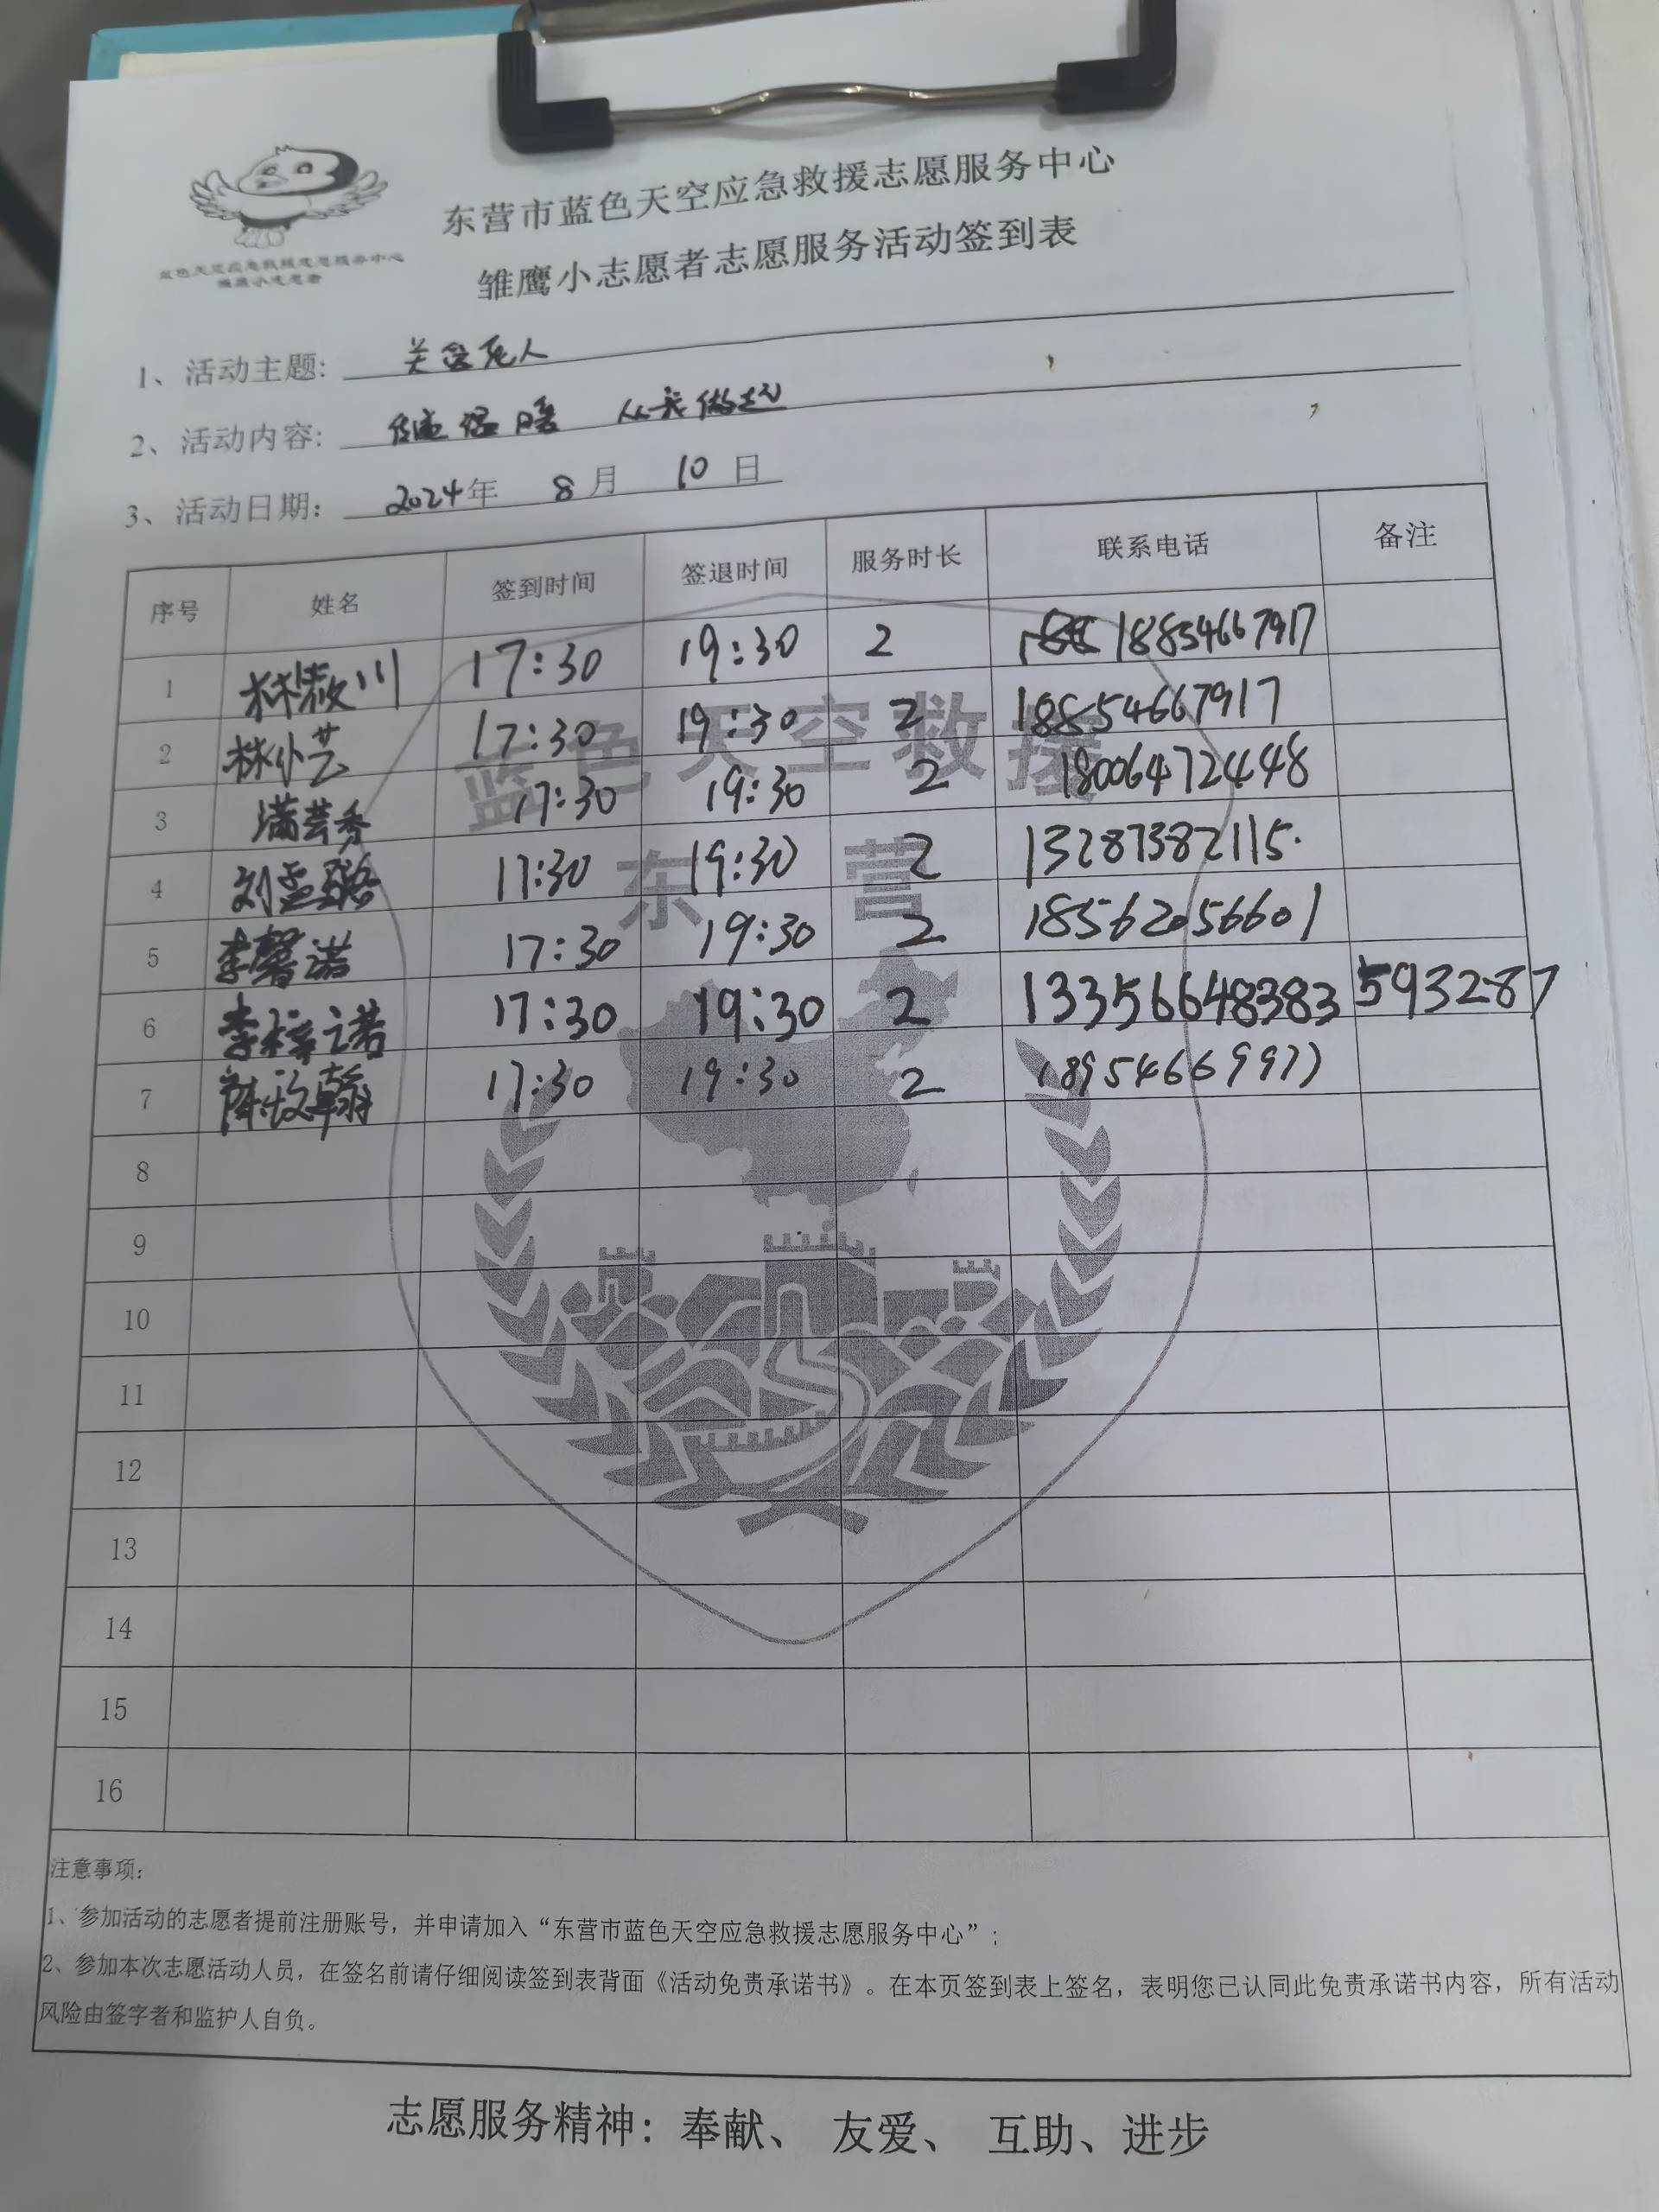 蓝色天空应急救援志愿服务中心
雏鹰小志愿者
东营市蓝色天空应急救援志愿服务中心
雏鹰小志愿者志愿服务活动签到表
1、活动主题: 关爱老人
2、活动内容: 传递温暖 从我做起
3、活动日期: 2024年 8月 10日
序号 姓名 签到时间 签退时间 服务时长 联系电话 备注
1 林筱川 17:30 19:30 2 18854667917
2 林小艺 17:30 19:30 2 18854667917
3 满芸秀 17:30 19:30 2 18006472448
4 刘 17:30 19:30 2 13287382115.
5 李馨诺 17:30 19:30 2 18562056601
6 李梓诺 17:30 19:30 2 13356648383 593287
7 17:30 19:30 2 18954669977
8
9
10
11
12
13
14
15
16
蓝色天空救援
东营
注意事项:
1、参加活动的志愿者提前注册账号，并申请加入“东营市蓝色天空应急救援志愿服务中心”;
2、参加本次志愿活动人员，在签名前请仔细阅读签到表背面《活动免责承诺书》。在本页签到表上签名，表明您已认同此免责承诺书内容，所有活动
风险由签字者和监护人自负。
志愿服务精神: 奉献、 友爱、 互助、进步